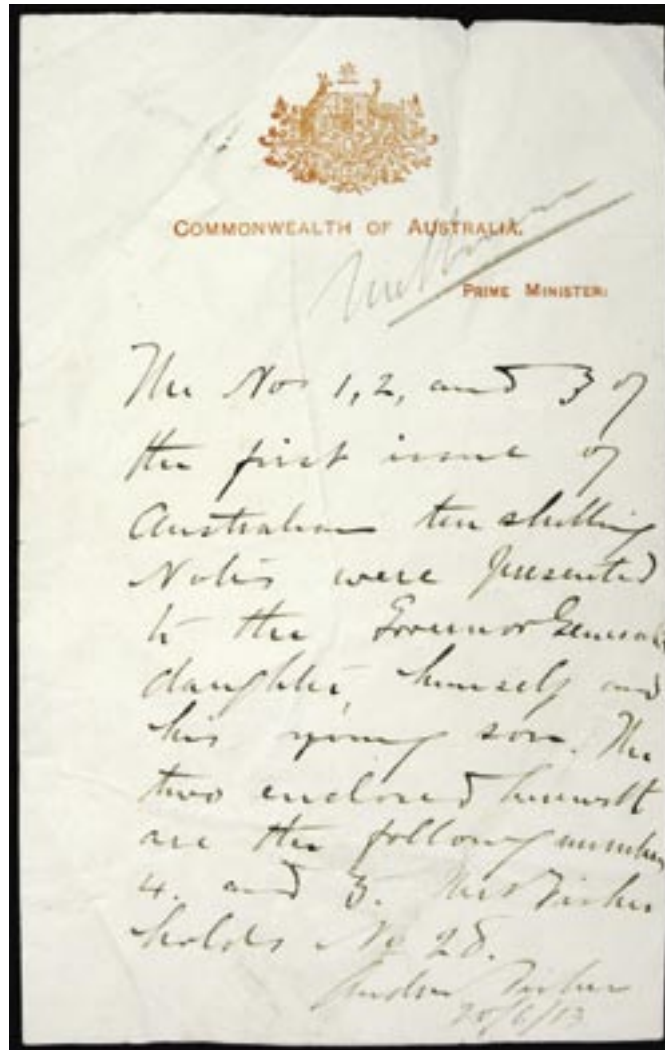 COMMONWEALTH OF AUSTRALIA.
PRIME MINISTER:
The Nos 1, 2, and 3 of
the first issue of
Australian ten shilling
Notes were presented
to the Governor General's
daughter, himself and
his young son. The
two enclosed herewith
are the following numbers
4. and 5. Mrs Fisher
holds No 28.
Andrew Fisher
20/6/13